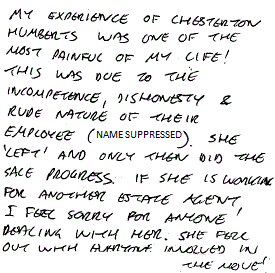 MY EXPERIENCE OF CHESTERTON
HUMBERTS WAS ONE OF THE
MOST PAINFUL OF MY LIFE!
THIS WAS DUE TO THE
INCOMPETENCE, DISHONESTY &
RUDE NATURE OF THEIR
EMPLOYEE (NAME SUPPRESSED). SHE
'LEFT' AND ONLY THEN DID THE
SALE PROGRESS. IF SHE IS WORKING
FOR ANOTHER ESTATE AGENT
I FEEL SORRY FOR ANYONE
DEALING WITH HER. SHE FELL
OUT WITH EVERYONE INVOLVED IN
THE MOVE!